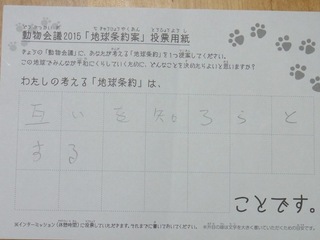 動物会議2015「地球条約案」投票用紙
きょうの「動物会議」に、あなたが考える「地球条約」を1つ提案してください。
この地球でみんなが平和にくらしていくために、どんなことを決めたらよいと思いますか?
わたしの考える「地球条約」は、
互いを知ろうと
する
ことです。